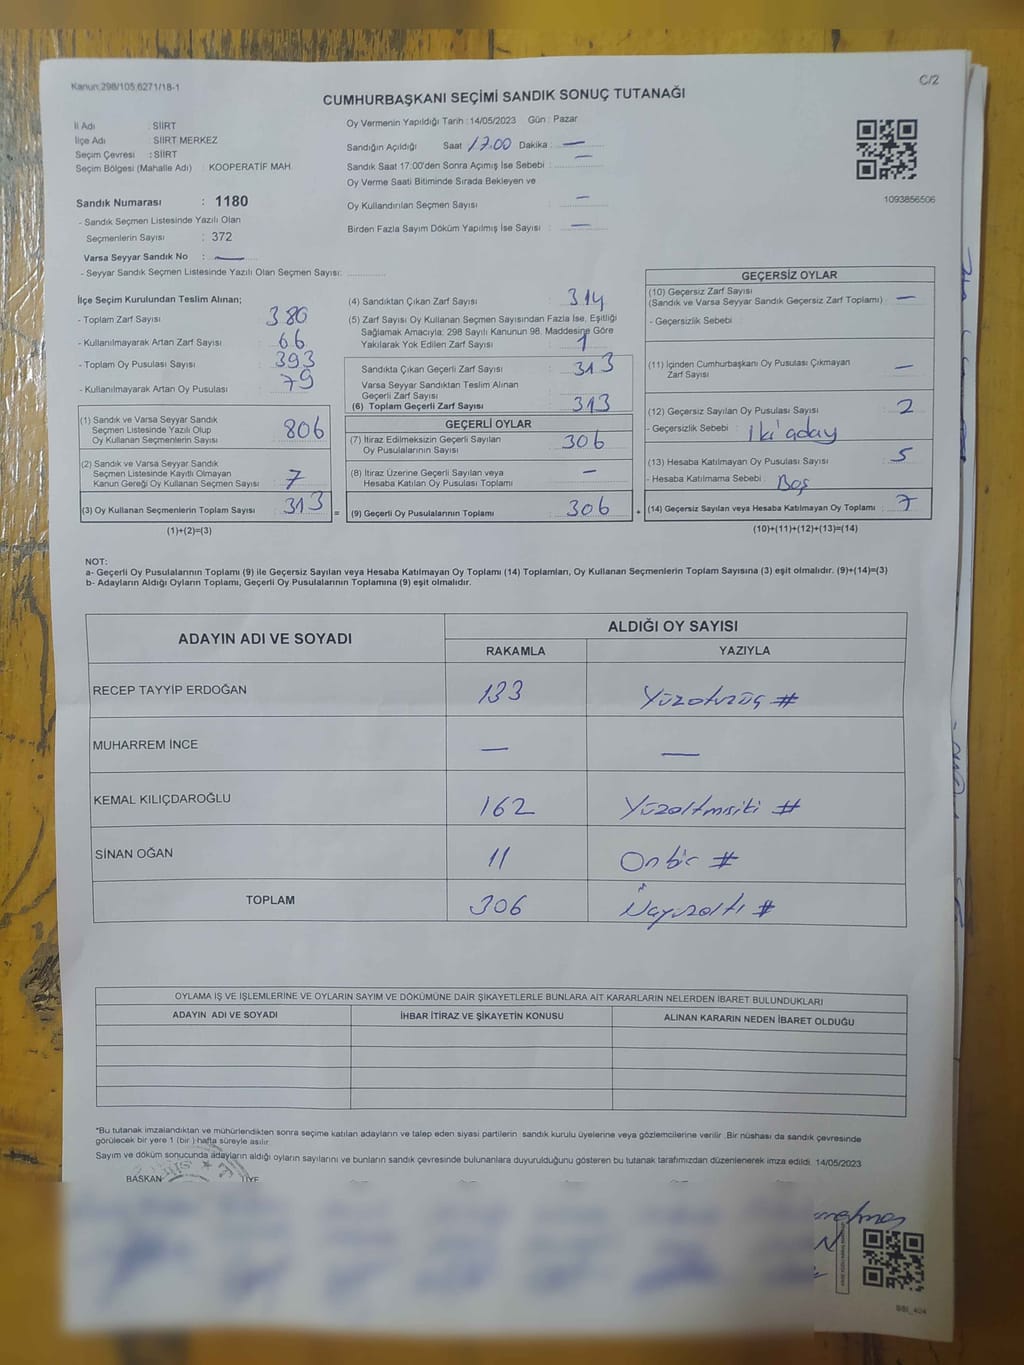 Kanun:298/105,6271/18-1
C/2
CUMHURBAŞKANI SEÇİMİ SANDIK SONUÇ TUTANAĞI
İl Adı : SİİRT
İlçe Adı : SİİRT MERKEZ
Seçim Çevresi : SİİRT
Seçim Bölgesi (Mahalle Adı) : KOOPERATİF MAH.
Sandık Numarası : 1180
- Sandık Seçmen Listesinde Yazılı Olan
Seçmenlerin Sayısı : 372
Varsa Seyyar Sandık No : —
- Seyyar Sandık Seçmen Listesinde Yazılı Olan Seçmen Sayısı:
Oy Vermenin Yapıldığı Tarih : 14/05/2023 Gün : Pazar
Sandığın Açıldığı Saat 17.00 Dakika : —
Sandık Saat 17:00'den Sonra Açılmış İse Sebebi : —
Oy Verme Saati Bitiminde Sırada Bekleyen ve
Oy Kullandırılan Seçmen Sayısı : —
Birden Fazla Sayım Döküm Yapılmış İse Sayısı : —
1093856506
İlçe Seçim Kurulundan Teslim Alınan;
- Toplam Zarf Sayısı : 380
- Kullanılmayarak Artan Zarf Sayısı : 66
- Toplam Oy Pusulası Sayısı : 393
- Kullanılmayarak Artan Oy Pusulası : 79
(1) Sandık ve Varsa Seyyar Sandık
Seçmen Listesinde Yazılı Olup
Oy Kullanan Seçmenlerin Sayısı : 806
(2) Sandık ve Varsa Seyyar Sandık
Seçmen Listesinde Kayıtlı Olmayan
Kanun Gereği Oy Kullanan Seçmen Sayısı : 7
(3) Oy Kullanan Seçmenlerin Toplam Sayısı : 313 =
(1)+(2)=(3)
(4) Sandıktan Çıkan Zarf Sayısı : 314
(5) Zarf Sayısı Oy Kullanan Seçmen Sayısından Fazla İse, Eşitliği
Sağlamak Amacıyla; 298 Sayılı Kanunun 98. Maddesine Göre
Yakılarak Yok Edilen Zarf Sayısı : 1
Sandıkta Çıkan Geçerli Zarf Sayısı : 313
Varsa Seyyar Sandıktan Teslim Alınan
Geçerli Zarf Sayısı
(6) Toplam Geçerli Zarf Sayısı : 313
GEÇERLİ OYLAR
(7) İtiraz Edilmeksizin Geçerli Sayılan
Oy Pusulalarının Sayısı : 306
(8) İtiraz Üzerine Geçerli Sayılan veya
Hesaba Katılan Oy Pusulası Toplamı : —
(9) Geçerli Oy Pusulalarının Toplamı : 306 +
GEÇERSİZ OYLAR
(10) Geçersiz Zarf Sayısı
(Sandık ve Varsa Seyyar Sandık Geçersiz Zarf Toplamı) : —
- Geçersizlik Sebebi :
(11) İçinden Cumhurbaşkanı Oy Pusulası Çıkmayan
Zarf Sayısı : —
(12) Geçersiz Sayılan Oy Pusulası Sayısı : 2
- Geçersizlik Sebebi : İki aday
(13) Hesaba Katılmayan Oy Pusulası Sayısı : 5
- Hesaba Katılmama Sebebi : Boş
(14) Geçersiz Sayılan veya Hesaba Katılmayan Oy Toplamı : 7
(10)+(11)+(12)+(13)=(14)
NOT:
a- Geçerli Oy Pusulalarının Toplamı (9) ile Geçersiz Sayılan veya Hesaba Katılmayan Oy Toplamı (14) Toplamları, Oy Kullanan Seçmenlerin Toplam Sayısına (3) eşit olmalıdır. (9)+(14)=(3)
b- Adayların Aldığı Oyların Toplamı, Geçerli Oy Pusulalarının Toplamına (9) eşit olmalıdır.
ADAYIN ADI VE SOYADI
ALDIĞI OY SAYISI
RAKAMLA YAZIYLA
RECEP TAYYİP ERDOĞAN 133 Yüzotuzüç #
MUHARREM İNCE — —
KEMAL KILIÇDAROĞLU 162 Yüzaltmışiki #
SİNAN OĞAN 11 Onbir #
TOPLAM 306 Üçyüzaltı #
OYLAMA İŞ VE İŞLEMLERİNE VE OYLARIN SAYIM VE DÖKÜMÜNE DAİR ŞİKAYETLERLE BUNLARA AİT KARARLARIN NELERDEN İBARET BULUNDUKLARI
ADAYIN ADI VE SOYADI İHBAR İTİRAZ VE ŞİKAYETİN KONUSU ALINAN KARARIN NEDEN İBARET OLDUĞU
*Bu tutanak imzalandıktan ve mühürlendikten sonra seçime katılan adayların ve talep eden siyasi partilerin sandık kurulu üyelerine veya gözlemcilerine verilir. Bir nüshası da sandık çevresinde
görülecek bir yere 1 (bir) hafta süreyle asılır.
Sayım ve döküm sonucunda adayların aldığı oyların sayılarını ve bunların sandık çevresinde bulunanlara duyurulduğunu gösteren bu tutanak tarafımızdan düzenlenerek imza edildi. 14/05/2023
BAŞKAN ÜYE
SBİ_404